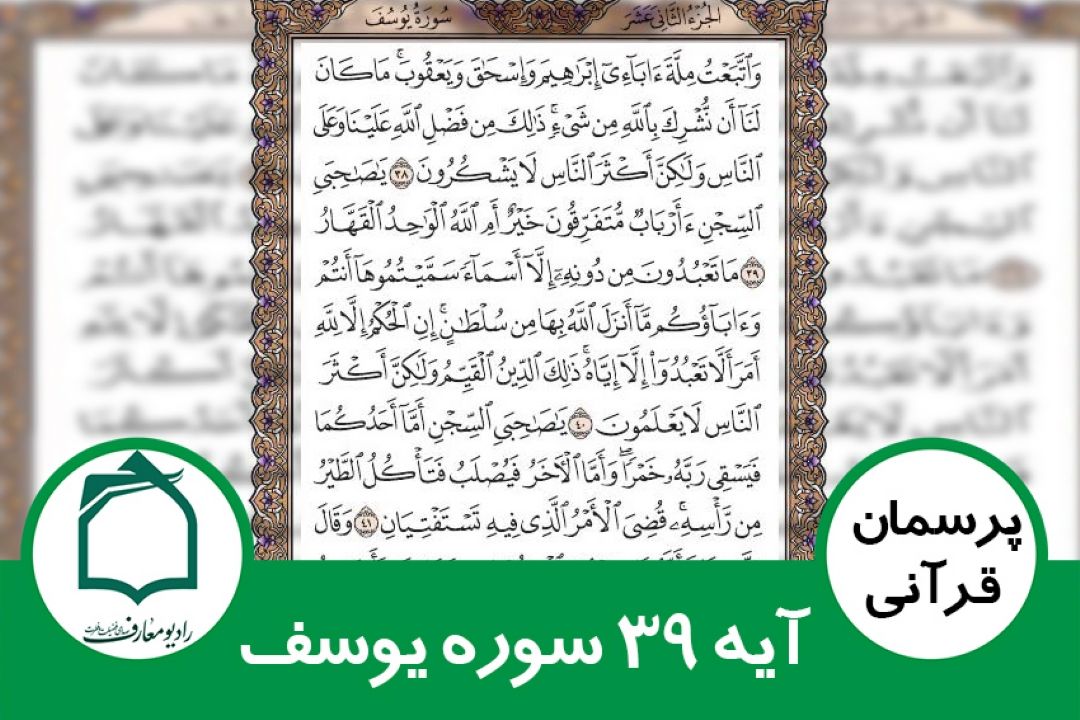 الجُزْءُ الثَّانِي عَشَرَ
سُورَةُ يُوسُفَ
وَٱتَّبَعْتُ مِلَّةَ ءَابَآءِىٓ إِبْرَٰهِيمَ وَإِسْحَٰقَ وَيَعْقُوبَۚ مَا كَانَ
لَنَآ أَن نُّشْرِكَ بِٱللَّهِ مِن شَىْءٍۚ ذَٰلِكَ مِن فَضْلِ ٱللَّهِ عَلَيْنَا وَعَلَى
ٱلنَّاسِ وَلَٰكِنَّ أَكْثَرَ ٱلنَّاسِ لَا يَشْكُرُونَ ٣٨ يَٰصَٰحِبَىِ
ٱلسِّجْنِ ءَأَرْبَابٌ مُّتَفَرِّقُونَ خَيْرٌ أَمِ ٱللَّهُ ٱلْوَٰحِدُ ٱلْقَهَّارُ
٣٩ مَا تَعْبُدُونَ مِن دُونِهِۦٓ إِلَّآ أَسْمَآءً سَمَّيْتُمُوهَآ أَنتُمْ
وَءَابَآؤُكُم مَّآ أَنزَلَ ٱللَّهُ بِهَا مِن سُلْطَٰنٍۚ إِنِ ٱلْحُكْمُ إِلَّا لِلَّهِ
أَمَرَ أَلَّا تَعْبُدُوٓا۟ إِلَّآ إِيَّاهُۚ ذَٰلِكَ ٱلدِّينُ ٱلْقَيِّمُ وَلَٰكِنَّ أَكْثَرَ
ٱلنَّاسِ لَا يَعْلَمُونَ ٤٠ يَٰصَٰحِبَىِ ٱلسِّجْنِ أَمَّآ أَحَدُكُمَا
فَيَسْقِى رَبَّهُۥ خَمْرًاۖ وَأَمَّا ٱلْءَاخَرُ فَيُصْلَبُ فَتَأْكُلُ ٱلطَّيْرُ
مِن رَّأْسِهِۦۚ قُضِىَ ٱلْأَمْرُ ٱلَّذِى فِيهِ تَسْتَفْتِيَانِ ٤١ وَقَالَ
پرسمان
قرآنی
رادیو معارف
آیه ۳۹ سوره یوسف